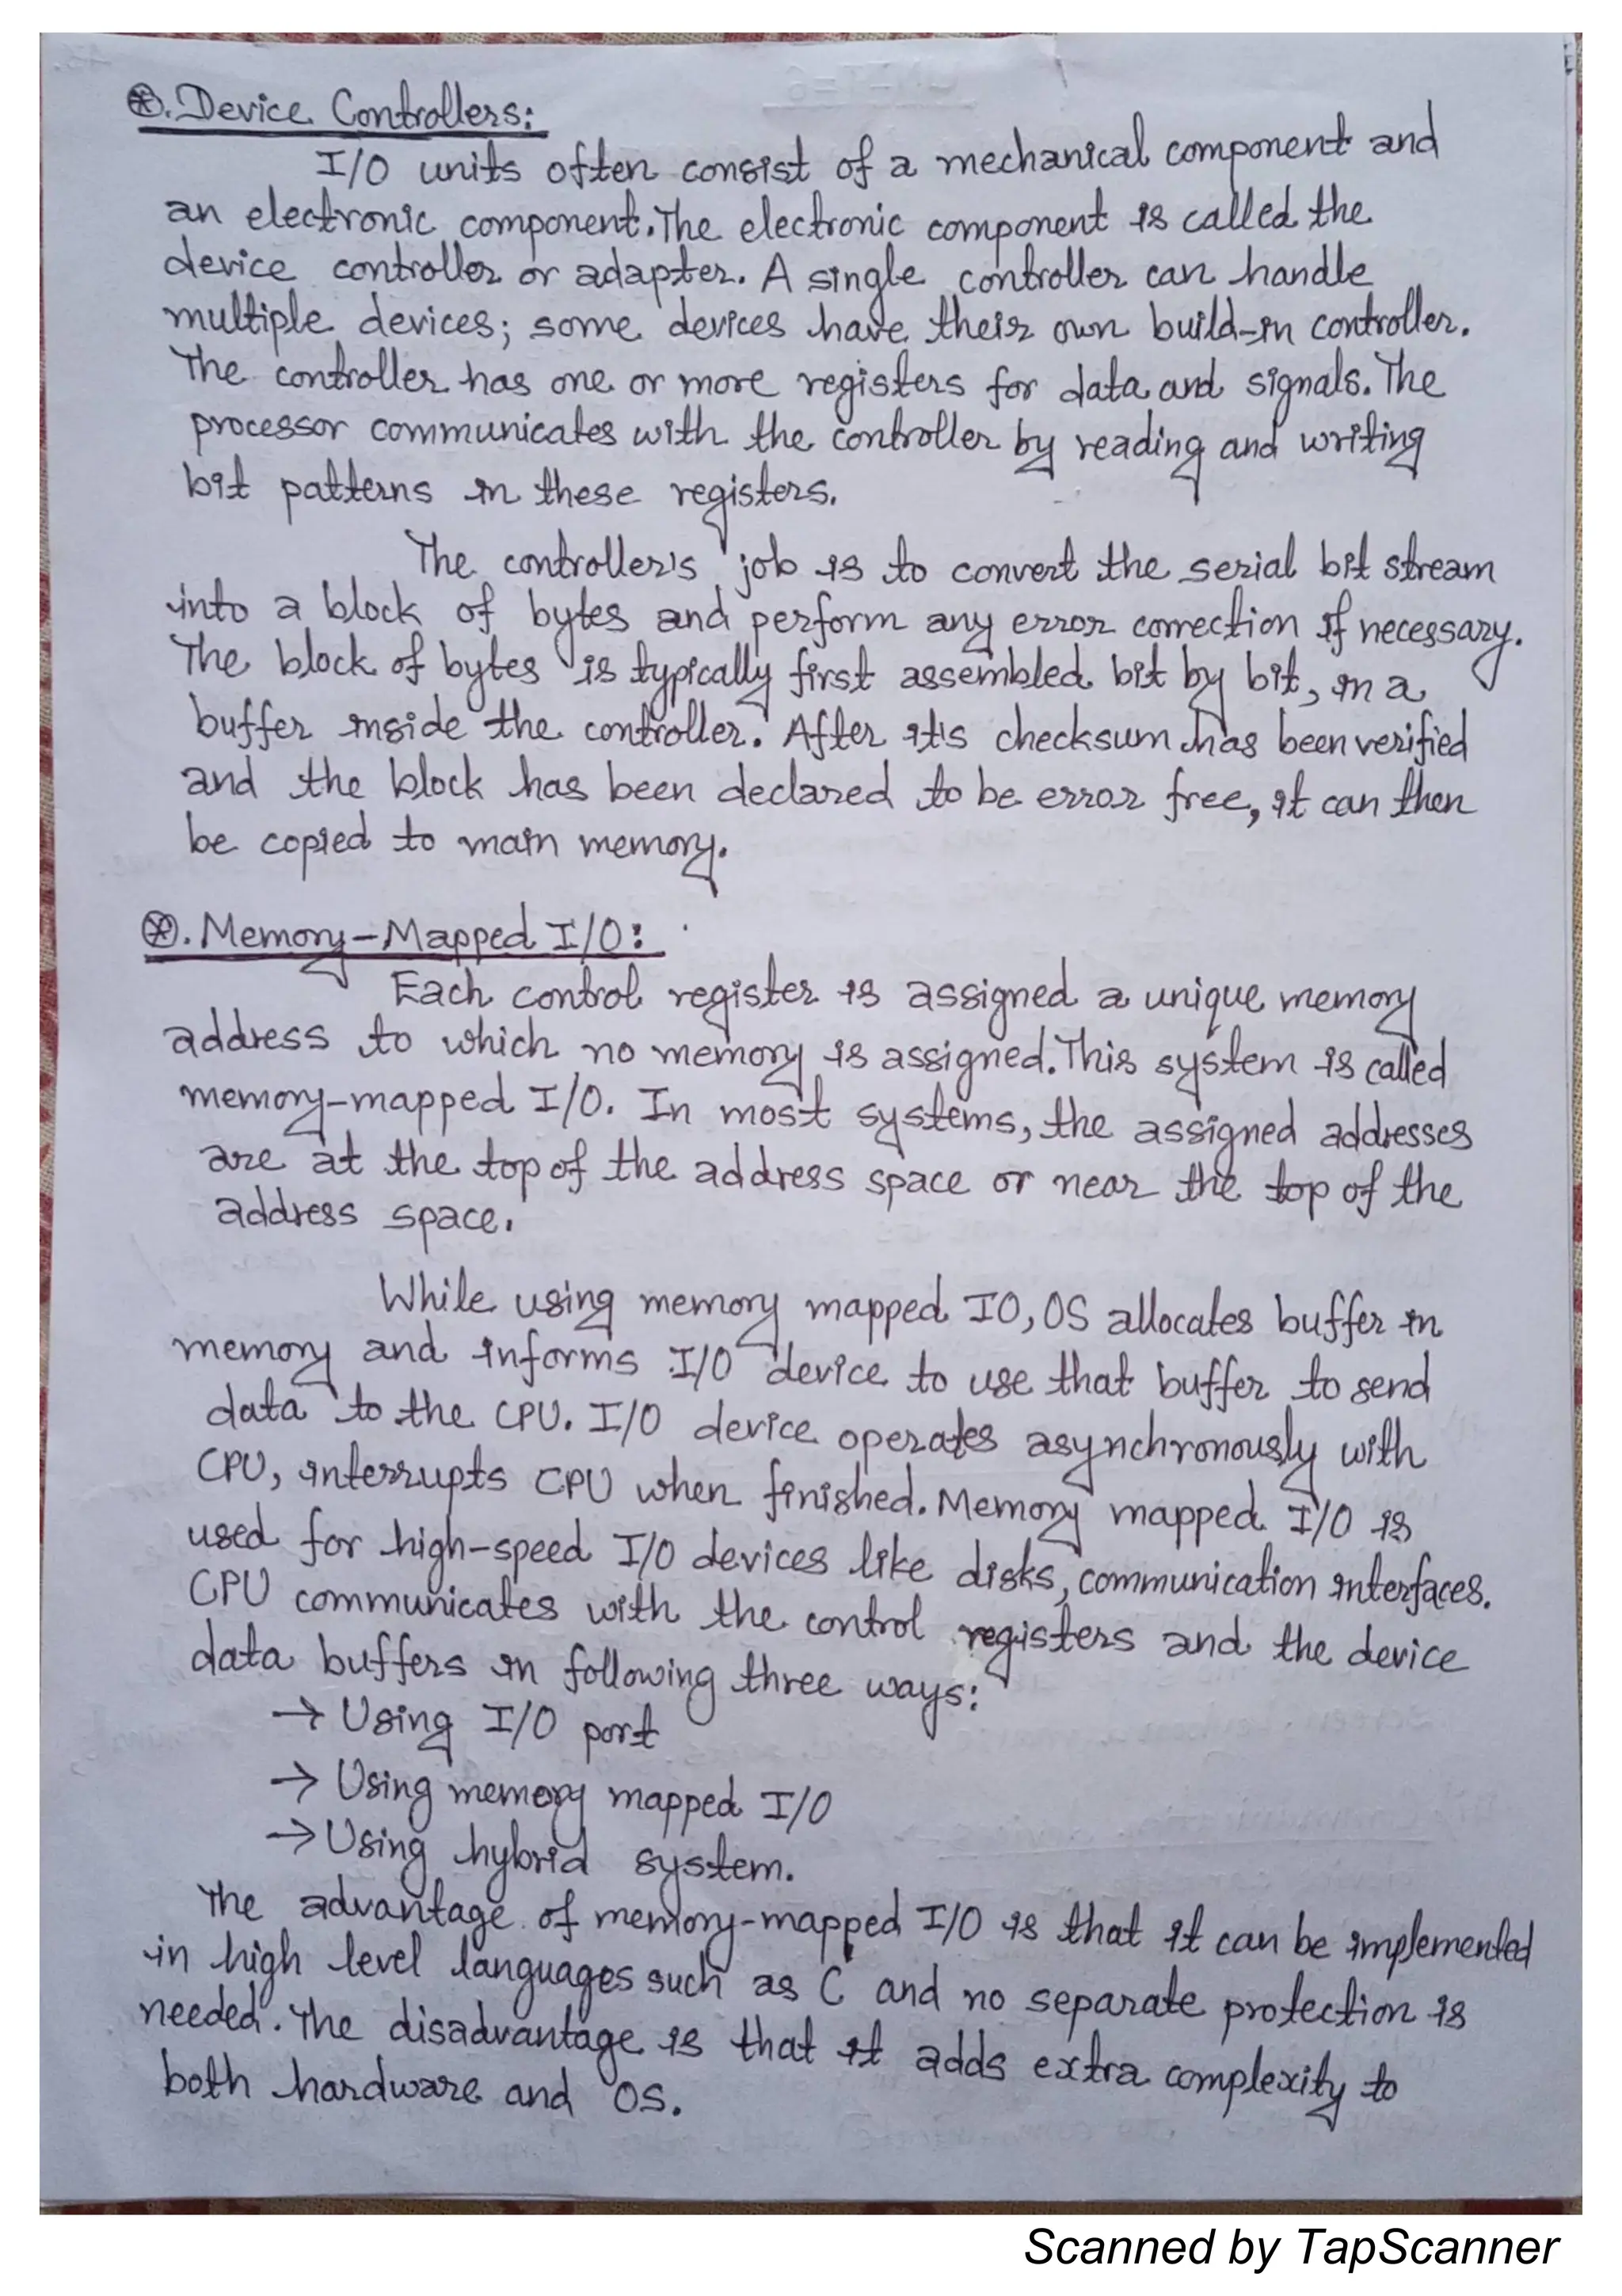 ⊛. Device Controllers:
I/O units often consist of a mechanical component and
an electronic component. The electronic component is called the
device controller or adapter. A single controller can handle
multiple devices; some devices have their own build-in controller.
The controller has one or more registers for data and signals. The
processor communicates with the controller by reading and writing
bit patterns in these registers.
The controller's job is to convert the serial bit stream
into a block of bytes and perform any error correction if necessary.
The block of bytes is typically first assembled bit by bit, in a
buffer inside the controller. After it's checksum has been verified
and the block has been declared to be error free, it can then
be copied to main memory.
⊛. Memory-Mapped I/O:
Each control register is assigned a unique memory
address to which no memory is assigned. This system is called
memory-mapped I/O. In most systems, the assigned addresses
are at the top of the address space or near the top of the
address space.
While using memory mapped IO, OS allocates buffer in
memory and informs I/O device to use that buffer to send
data to the CPU. I/O device operates asynchronously with
CPU, interrupts CPU when finished. Memory mapped I/O is
used for high-speed I/O devices like disks, communication interfaces.
CPU communicates with the control registers and the device
data buffers in following three ways:
→ Using I/O port
→ Using memory mapped I/O
→ Using hybrid system.
The advantage of memory-mapped I/O is that it can be implemented
in high level languages such as C and no separate protection is
needed. The disadvantage is that it adds extra complexity to
both hardware and OS.
Scanned by TapScanner